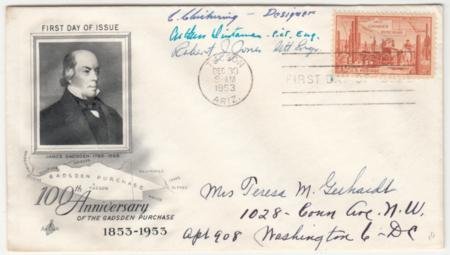 FIRST DAY OF ISSUE
Chickering - Designer
Arthur Dintaman - Pict. Eng.
Robert J. Jones
TUCSON
DEC 30
9 AM
1953
ARIZ.
GADSDEN PURCHASE
FIRST DAY OF ISSUE
JAMES GADSDEN 1788-1858
GADSDEN PURCHASE
TUCSON
100th Anniversary
OF THE GADSDEN PURCHASE
1853-1953
Mrs Teresa M. Gerhardt
1028- Conn Ave. N.W.
Apt 908 Washington 6 - DC